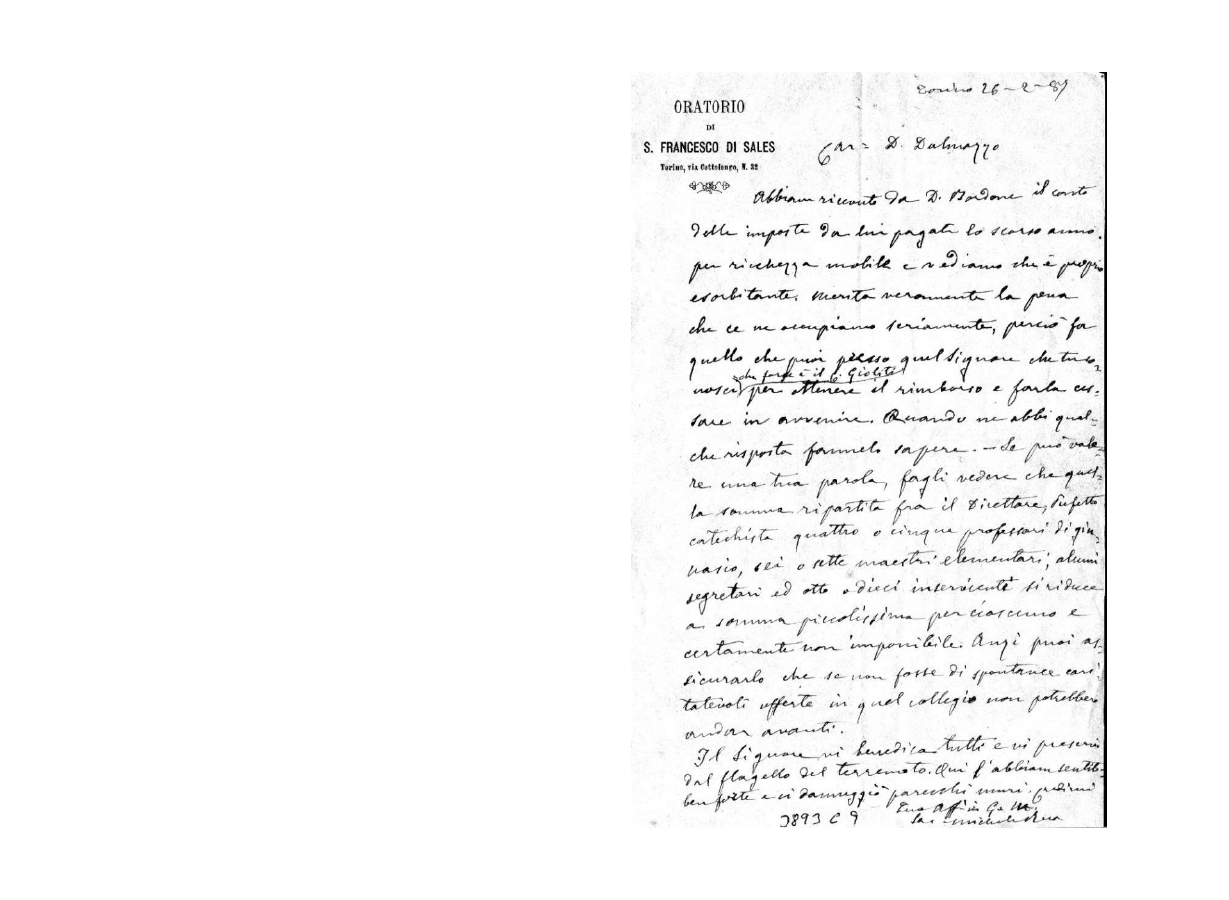 Torino 26-2-87
ORATORIO
DI
S. FRANCESCO DI SALES
Torino, via Cottolengo, N. 32
Car= D. Dalmazzo
Abbiam ricevuto da D. Bordone il conto
delle imposte da lui pagate lo scorso anno
per ricchezza mobile e vediamo che è proprio
esorbitante. Merita veramente la pena
che ce ne occupiamo seriamente, perciò fa
quello che puoi presso quel Signore che tu co=
che forse è il C. Giolitti
nosci per ottenere il rimborso e farla ces=
sare in avvenire. Quando ne abbi qual=
che risposta fammelo sapere. - Se può vale=
re una tua parola, fagli vedere che quel=
la somma ripartita fra il Direttore, Prefetto
catechista quattro o cinque professori di gin=
nasio, sei o sette maestri elementari, alcuni
segretari ed otto o dieci inservienti si riduce
a somma piccolissima per ciascuno e
certamente non imponibile. Anzi puoi as=
sicurarlo che se non fosse di spontanee cari
tatevoli offerte in quel collegio non potrebbero
andar avanti.
Il Signore vi benedica tutti e vi preservi
dal flagello del terremoto. Qui l'abbiam sentito
ben forte e ci danneggiò parecchi muri. Credimi
Tuo Aff in G. e M.
Sac. Michele Rua
3893 C 9